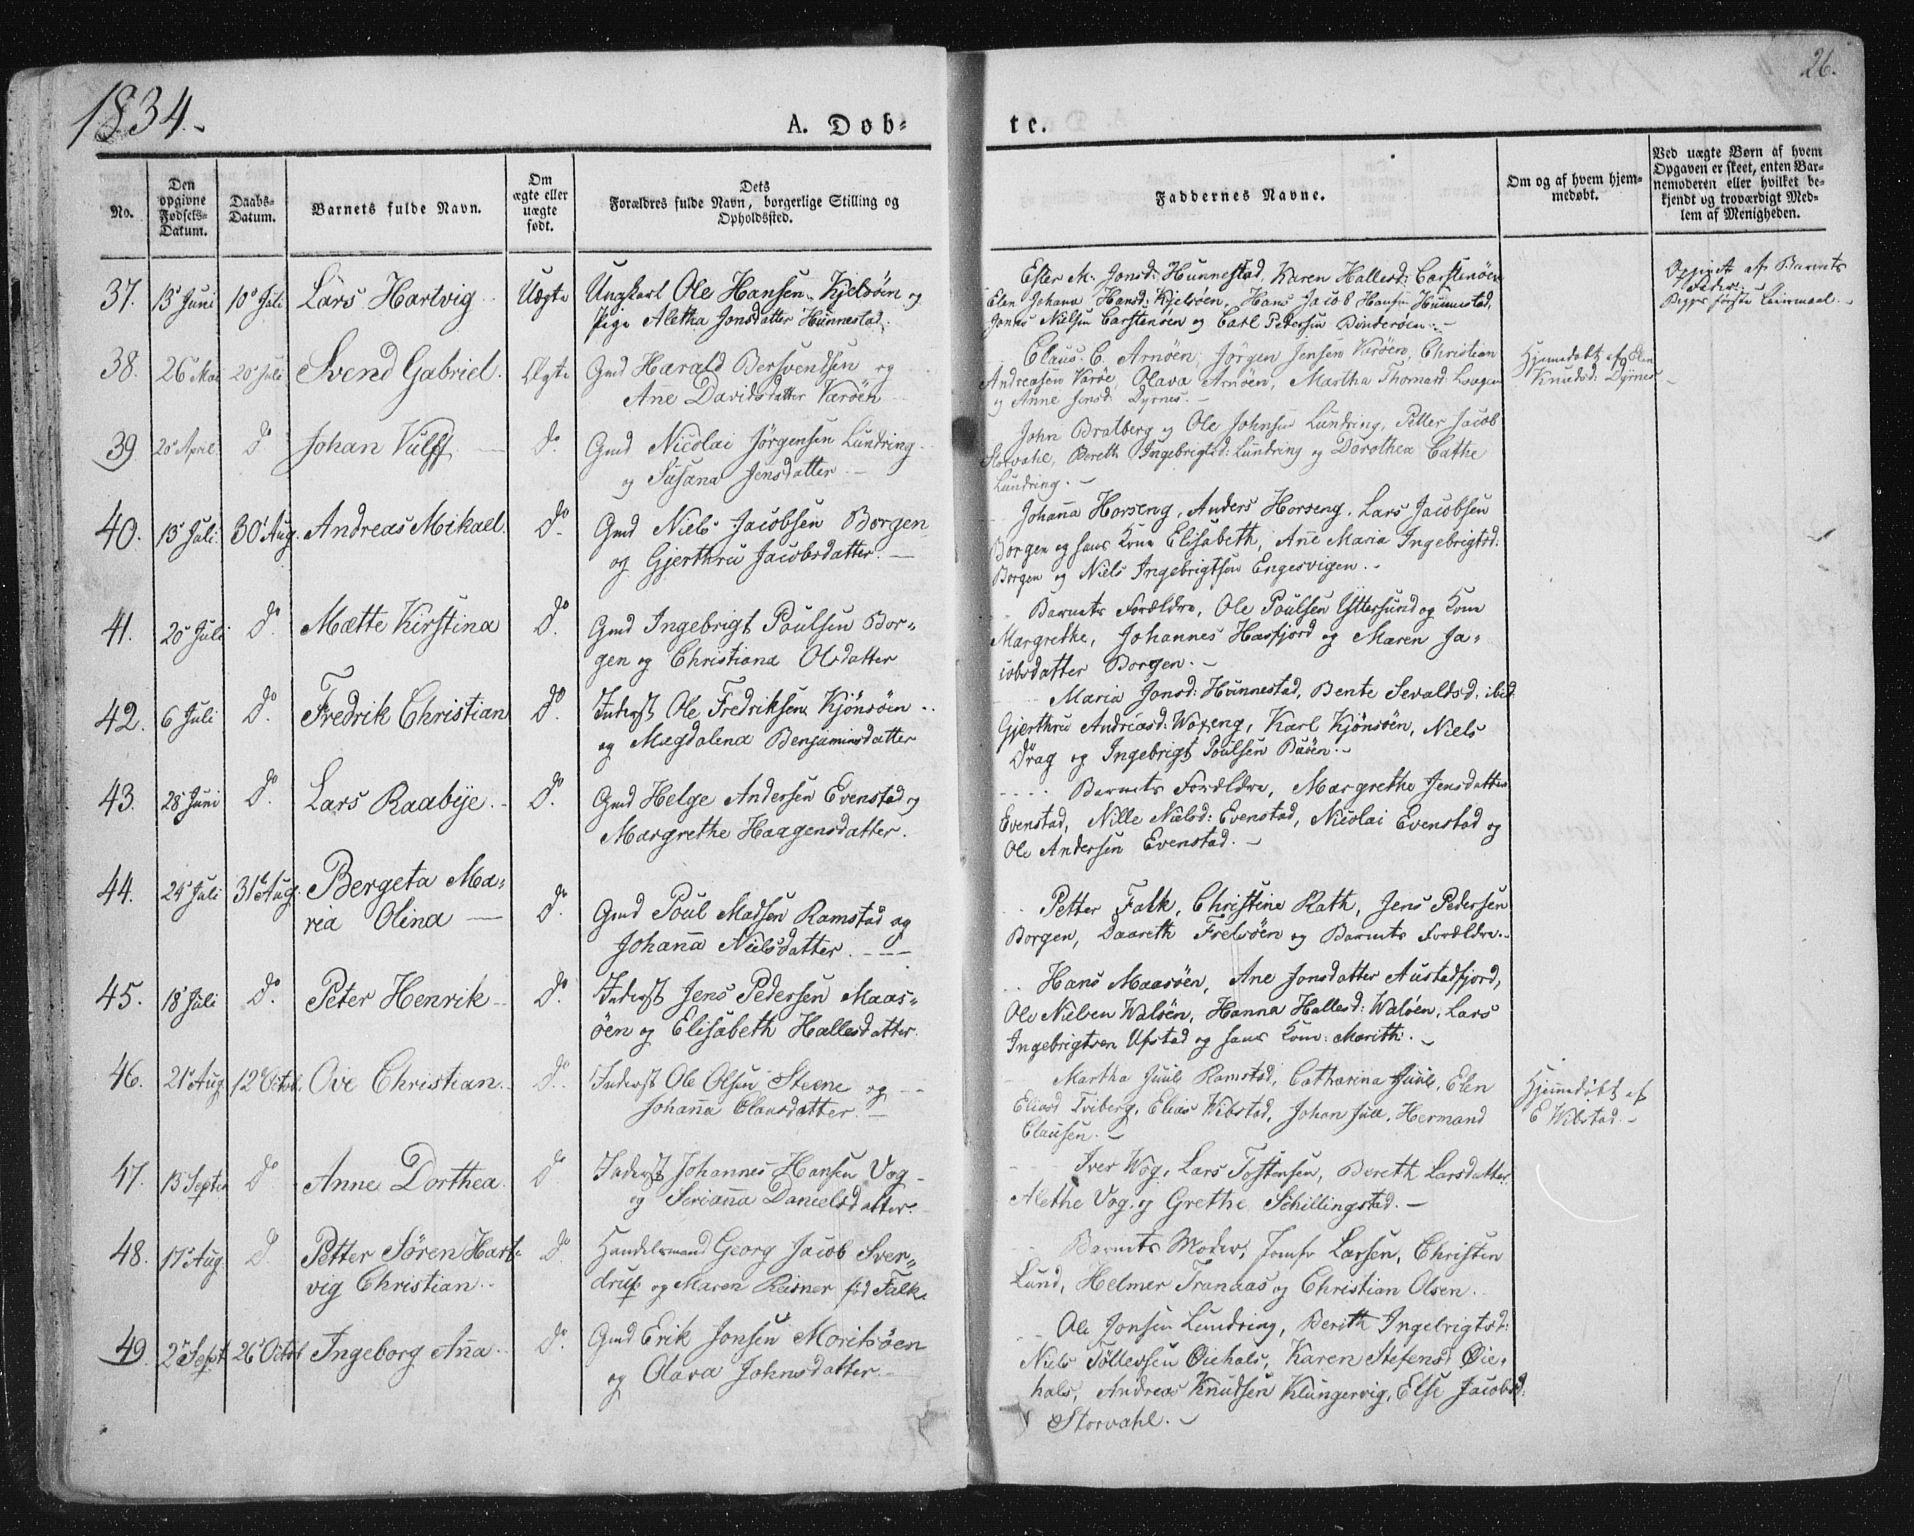 1834.
26.
A. Døb-
te.
No.
Den opgivne Fødsels-Datum.
Daabs-Datum.
Barnets fulde Navn.
Om ægte eller uægte født.
Dets
Forældres fulde Navn, borgerlige Stilling og
Opholdssted.
Faddernes Navne.
Om og af hvem hjem-
medøbt.
Ved uægte Børn af hvem
Opgaven er skeet, enten Bar-
nemoderen eller hvilket be-
kjendt og troværdigt Med-
lem af Menigheden.
37. 13 Juni 10 Juli Lars Hartvig Uægte Ungkarl Ole Hansen Kjelsöen og
Pige Aletha Jonsdatter Hunnestad.
Ester M. Jonsd: Hunnestad, Karen Hallesd: Carstenöen
Elen Johana Hansd: Kjelsöen, Hans Jacob Hansen Hunnestad,
Jonas Nielsen Carstenöen og Carl Petersen Binderöen.
af Barnets
Fader.
første Leiermaal.
38. 26 Mai 20 Juli Svend Gabriel. Ægte Gmd Harald Bersvendsen og
Ane Davidsdatter Værøen
Claus C. Arnöen, Jørgen Jensen Værøen, Christian
Andreasen Værøe, Olava Arnöen, Martha Thomasd:
og Anne Jensd: Dyrnes.
Hjemmedøbt af Elen
Knudsd: Dyrnes
39 20 April do Johan Vulff do. Gmd Nicolai Jörgensen Lundring
og Susana Jensdatter
John Bratberg og Ole Johnsen Lundring, Petter Jacob
Storvahl, Bereth Ingebrigtsd: Lundring og Dorothea Cathe
Lundring.
40. 13 Juli 30 Aug. Andreas Mikael. do. Gmd Niels Jacobsen Borgen
og Gjerthru Jacobsdatter.
Johanna Horseng, Anders Horseng, Lars Jacobsen
Borgen og hans Kone Elisabeth, Ane Maria Ingebrigtsd:
Borgen og Niels Ingebrigtsen Engesvigen.
41. 20 Juli do. Mætte Kirstina do. Gmd Ingebrigt Poulsen Bor-
gen og Christiana Olsdatter
Barnets Forældre, Ole Poulsen Yttersund og Kone
Margrethe, Johannes Hasfjord og Maren Ja-
cobsdatter Borgen.
42. 6 Juli do. Fredrik Christian do. Inderst Ole Fredriksen Kjönsöen
og Magdalena Benjaminsdatter
Maria Jonsd: Hunnestad, Bente Sevaldsd: ibid:
Gjerthru Andreasd: Woxeng, Karl Kjönsöen, Niels
Drag og Ingebrigt Poulsen Buöen.
43. 28 Juni do. Lars Raabye. do. Gmd Helge Andersen Evenstad og
Margrethe Haagensdatter.
Barnets Forældre, Margrethe Jensdatter
Evenstad, Nille Nielsd: Evenstad, Nicolai Evenstad og
Ole Andersen Evenstad.
44. 24 Juli 31 Aug. Bergeta Ma-
ria Olina do. Gmd Poul Madsen Ramstad og
Johanna Nielsdatter.
Petter Falk, Christine Rath, Jens Pedersen
Borgen, Daareth Frelsöen og Barnets Forældre.
45. 18 Juli do. Peter Henrik do. Inderst Jens Pedersen Maas-
öen og Elisabeth Hallesdatter.
Hans Maasöen, Ane Jonsdatter Austadfjord,
Ole Nielsen Walöen, Hanna Hallesd: Walöen, Lars
Ingebrigtsen Ufstad og hans Kone: Marith.
46. 21 Aug. 12 Octob. Ove Christian. do. Inderst Ole Olsen Steene og
Johanna Clausdatter.
Martha Juul Ramstad, Catharina Juul, Elen
Eliasd Tviberg, Elias Wibstad, Johan Juul, Hermand
Clausen.
Hjemmedøbt af
E Wibstad.
47. 13 Septer do Anne Dorthea do. Inderst Johannes Hansen Vog
og Serianna Danielsdatter.
Iver Wog, Lars Tostensen, Bereth Larsdatter
Alethe Vog. og Grethe Schillingstad.
48. 17 Aug. do. Petter Sören Hart-
vig Christian do. Handelsmand Georg Jacob Sver-
drup og Maren Reisner fød Falk.
Barnets Moder, Jomfr Larsen, Christen
Lund, Helmer Tranaas og Christian Olsen.
49. 2 Sept 26 Octob Ingeborg Anna do. Gmd Erik Jonsen Moritsöen
og Olava Johnsdatter.
Ole Jonsen Lundring, Berith Ingebrigtsd:
Niels Töllevsen Øiehals, Karen Stefensd Øie-
hals, Andreas Knudsen Klungervig, Else Jacobsd:
Storvahl.